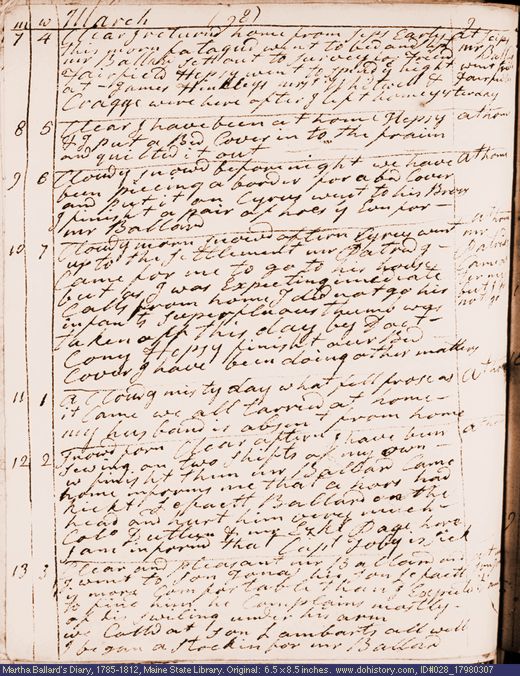 m w March (98)
7 4 Clear I returned home from Seps Early
this morn fatagud went to bed and up
mr Ballard sett out to survey for Friend
Fairfield Hepsy went to spend the
at James Hinkleys mrs Whitwell &
Craggs were here after I left home yesterday
8 5 Clear I have been at home Hepsy
& I put a Bed Cover into the fraim
and quilted it out
9 6 Cloudy snowd before night we have
been pieceing a border for a bed Cover
and put it on Cyrus went to his Bror
I finisht a pair of hoes for
mr Ballard
10 7 Cloudy morn snowd aftern Cyrus went
up to the Settlement mr Patridg
Came for me to go to his house
but as I was Expecting immediate
Calls from home I did not go his
infants superfluous thumb was
taken off this day by Doct
Cony Hepsy finisht our bed
Cover I have been doing other matters
11 1 a Cloudy misty day what fell frose as
it Came we all tarried at home
my husband is absent from home
12 2 Snow forn Clear aftern I have been
sewing on two shifts of my own
& finisht them mr Ballard Came
home informs me that a hors had
kickt Epaett Ballard on the
head and hurt him very much
Colo Dutten & mr Ezkl Page here
I am informd that Capt Foby is sick
13 3 Clear and pleasant mr Ballard and
I went to son Jonas his son Epaett
is more Comfortable than I Expected
to find him he Complains mostly
of his swiling under his arm
we Calld at son Lambarts all well
I began a stockin for mr Ballard
at home
at home
at home
mr
Came
for me
but I did
not go
at home
at home
Martha Ballard's Diary, 1785-1812, Maine State Library. Original: 6.5 x 8.5 inches. www.dohistory.com, ID#028_17980307